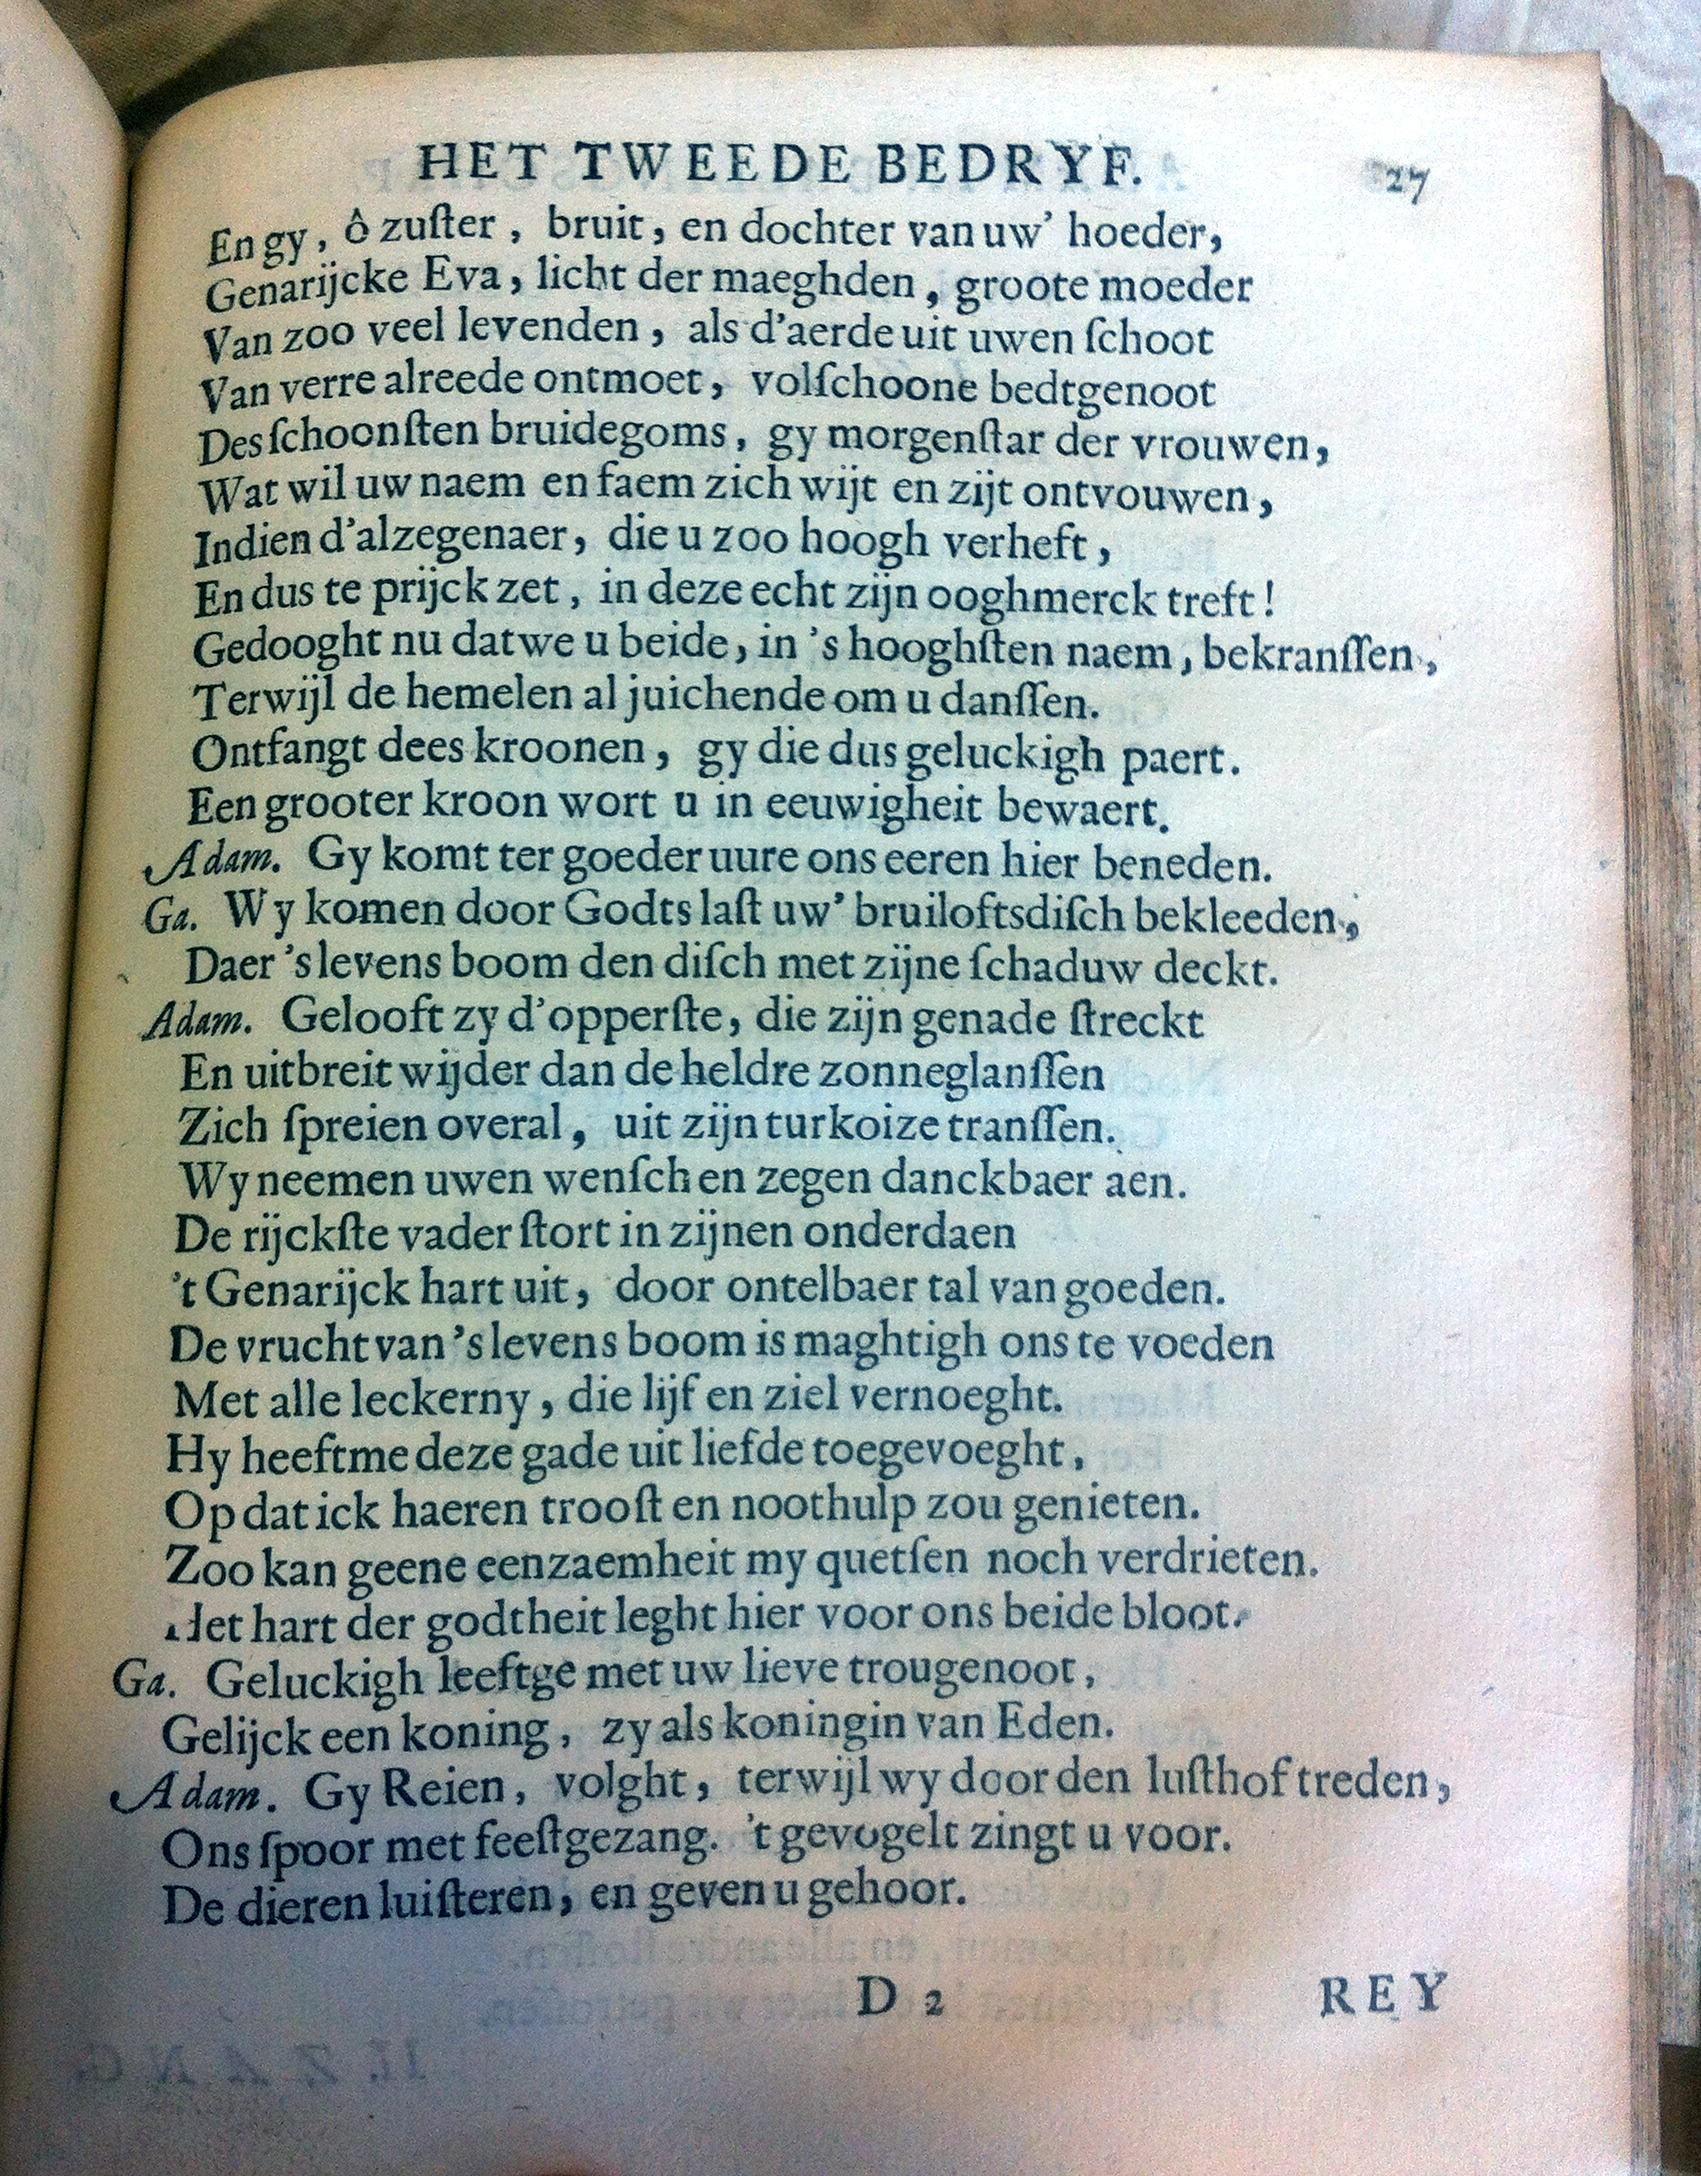 HET TWEEDE BEDRYF. 27
En gy, ô zuſter, bruit, en dochter van uw' hoeder,
Genarijcke Eva, licht der maeghden, groote moeder
Van zoo veel levenden, als d'aerde uit uwen ſchoot
Van verre alreede ontmoet, volſchoone bedtgenoot
Des ſchoonſten bruidegoms, gy morgenſtar der vrouwen,
Wat wil uw naem en faem zich wijt en zijt ontvouwen,
Indien d'alzegenaer, die u zoo hoogh verheft,
En dus te prijck zet, in deze echt zijn ooghmerck treft!
Gedooght nu dat we u beide, in 's hooghſten naem, bekranſſen,
Terwijl de hemelen al juichende om u danſſen.
Ontfangt dees kroonen, gy die dus geluckigh paert.
Een grooter kroon wort u in eeuwigheit bewaert.
Adam. Gy komt ter goeder uure ons eeren hier beneden.
Ga. Wy komen door Godts laſt uw' bruiloftsdiſch bekleeden,
Daer 's levens boom den diſch met zijne ſchaduw deckt.
Adam. Gelooft zy d'opperſte, die zijn genade ſtreckt
En uitbreit wijder dan de heldre zonneglanſſen
Zich ſpreien overal, uit zijn turkoize tranſſen.
Wy neemen uwen wenſch en zegen danckbaer aen.
De rijckſte vader ſtort in zijnen onderdaen
't Genarijck hart uit, door ontelbaer tal van goeden.
De vrucht van 's levens boom is maghtigh ons te voeden
Met alle leckerny, die lijf en ziel vernoeght.
Hy heeftme deze gade uit liefde toegevoeght,
Op dat ick haeren trooſt en noothulp zou genieten.
Zoo kan geene eenzaemheit my quetſen noch verdrieten.
Het hart der godtheit leght hier voor ons beide bloot.
Ga. Geluckigh leeftge met uw lieve trougenoot,
Gelijck een koning, zy als koningin van Eden.
Adam. Gy Reien, volght, terwijl wy door den luſthof treden,
Ons ſpoor met feeſtgezang. 't gevogelt zingt u voor.
De dieren luiſteren, en geven u gehoor.
D 2 REY